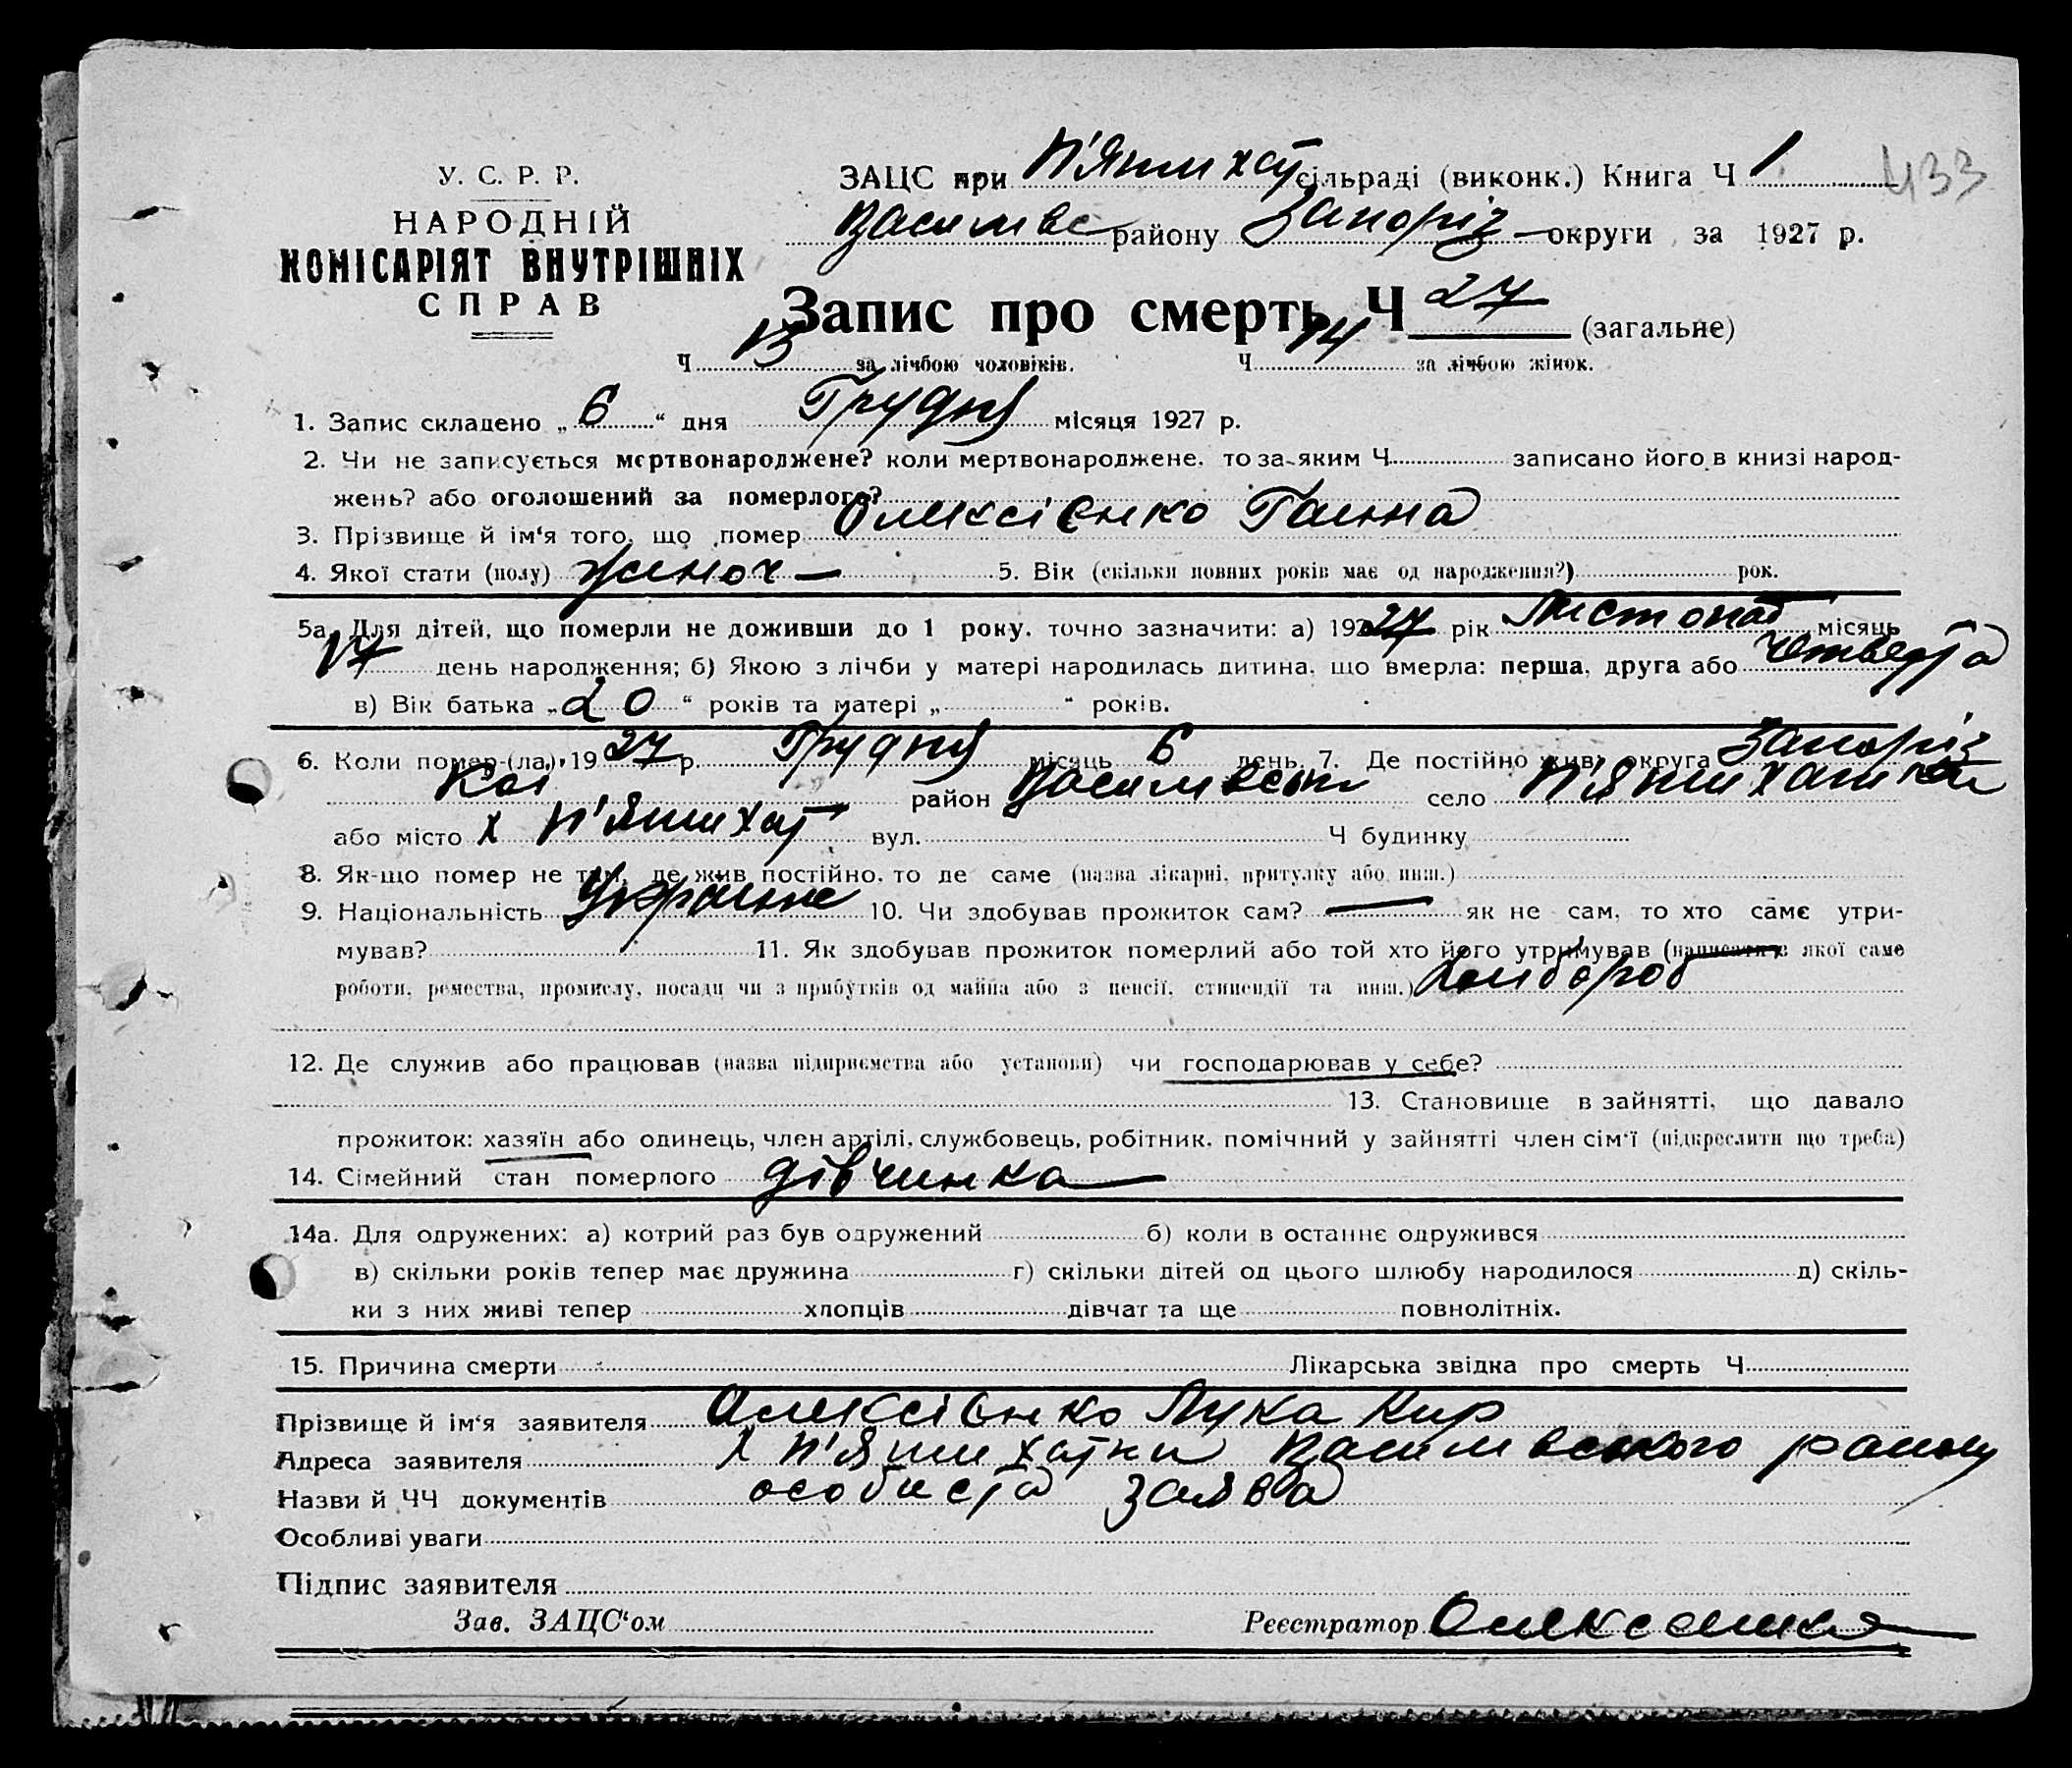 У. С. Р. Р.
НАРОДНІЙ
КОМІСАРІЯТ ВНУТРІШНІХ
СПРАВ
ЗАЦС при П'ятихат сільраді (виконк.) Книга Ч 1 433
Василівс району Запоріз округи за 1927 р.
Запис про смерть Ч 27 (загальне)
Ч 13 за лічбою чоловіків. Ч 14 за лічбою жінок.
1. Запис складено „ 6 “ дня Грудня місяця 1927 р.
2. Чи не записується мертвонароджене? коли мертвонароджене, то за яким Ч записано його в книзі народ-
жень? або оголошений за померлого?
3. Прізвище й ім‘я того, що помер Олексієнко Ганна
4. Якої стати (полу) жіноч 5. Вік (скільки повних років має од народження?) рок.
5а. Для дітей, що померли не доживши до 1 року, точно зазначити: а) 192 27 рік Листопад місяць
17 день народження; б) Якою з лічби у матері народилась дитина, що вмерла: перша, друга або Четверта
в) Вік батька „ 20 “ років та матері „ “ років.
6. Коли помер-(ла) 19 27 р. Грудня місяць 6 день. 7. Де постійно жив: округа Запоріз
Кої район Василівськ село П'ятихатки
або місто х П'ятихат вул. Ч будинку
8. Як-що помер не там, де жив постійно, то де саме (назва лікарні, притулку або инш.)
9. Національність Україн 10. Чи здобував прожиток сам? — як не сам, то хто саме утри-
мував? 11. Як здобував прожиток померлий або той хто його утримував (написати з якої саме
роботи, ремества, промислу, посади чи з прибутків од майна або з пенсії, стипендії та инш.) Хлибороб
12. Де служив або працював (назва підприємства або установи) чи господарював у себе?
13. Становище в зайнятті, що давало
прожиток: хазяїн або одинець, член артілі, службовець, робітник, помічний у зайнятті член сім‘ї (підкреслити що треба)
14. Сімейний стан померлого дівчинка
14а. Для одружених: а) котрий раз був одружений б) коли в останнє одружився
в) скільки років тепер має дружина г) скільки дітей од цього шлюбу народилося д) скіль-
ки з них живі тепер хлопців дівчат та ще повнолітніх.
15. Причина смерти Лікарська звідка про смерть Ч
Прізвище й ім‘я заявителя Олексієнко Лука Кир
Адреса заявителя х П'ятихатки Василівського району
Назви й ЧЧ документів особиста заява
Особливі уваги
Підпис заявителя
Зав. ЗАЦС‘ом Реєстратор